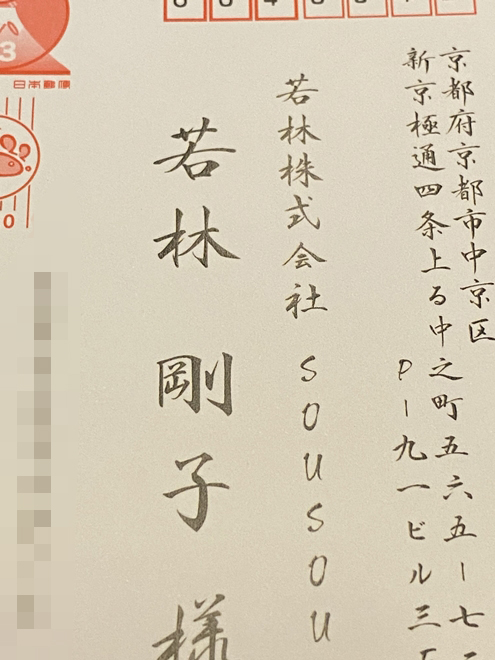 京都府京都市中京区
新京極通四条上る中之町五六五ー七
Pー九一ビル三
若林株式会社 SOUSOU
若林 剛子 様
日本郵便